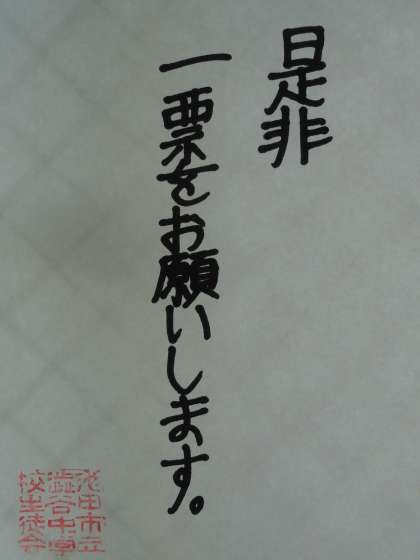 是非
一票をお願いします。
池田市立
澁谷中学
校生徒会